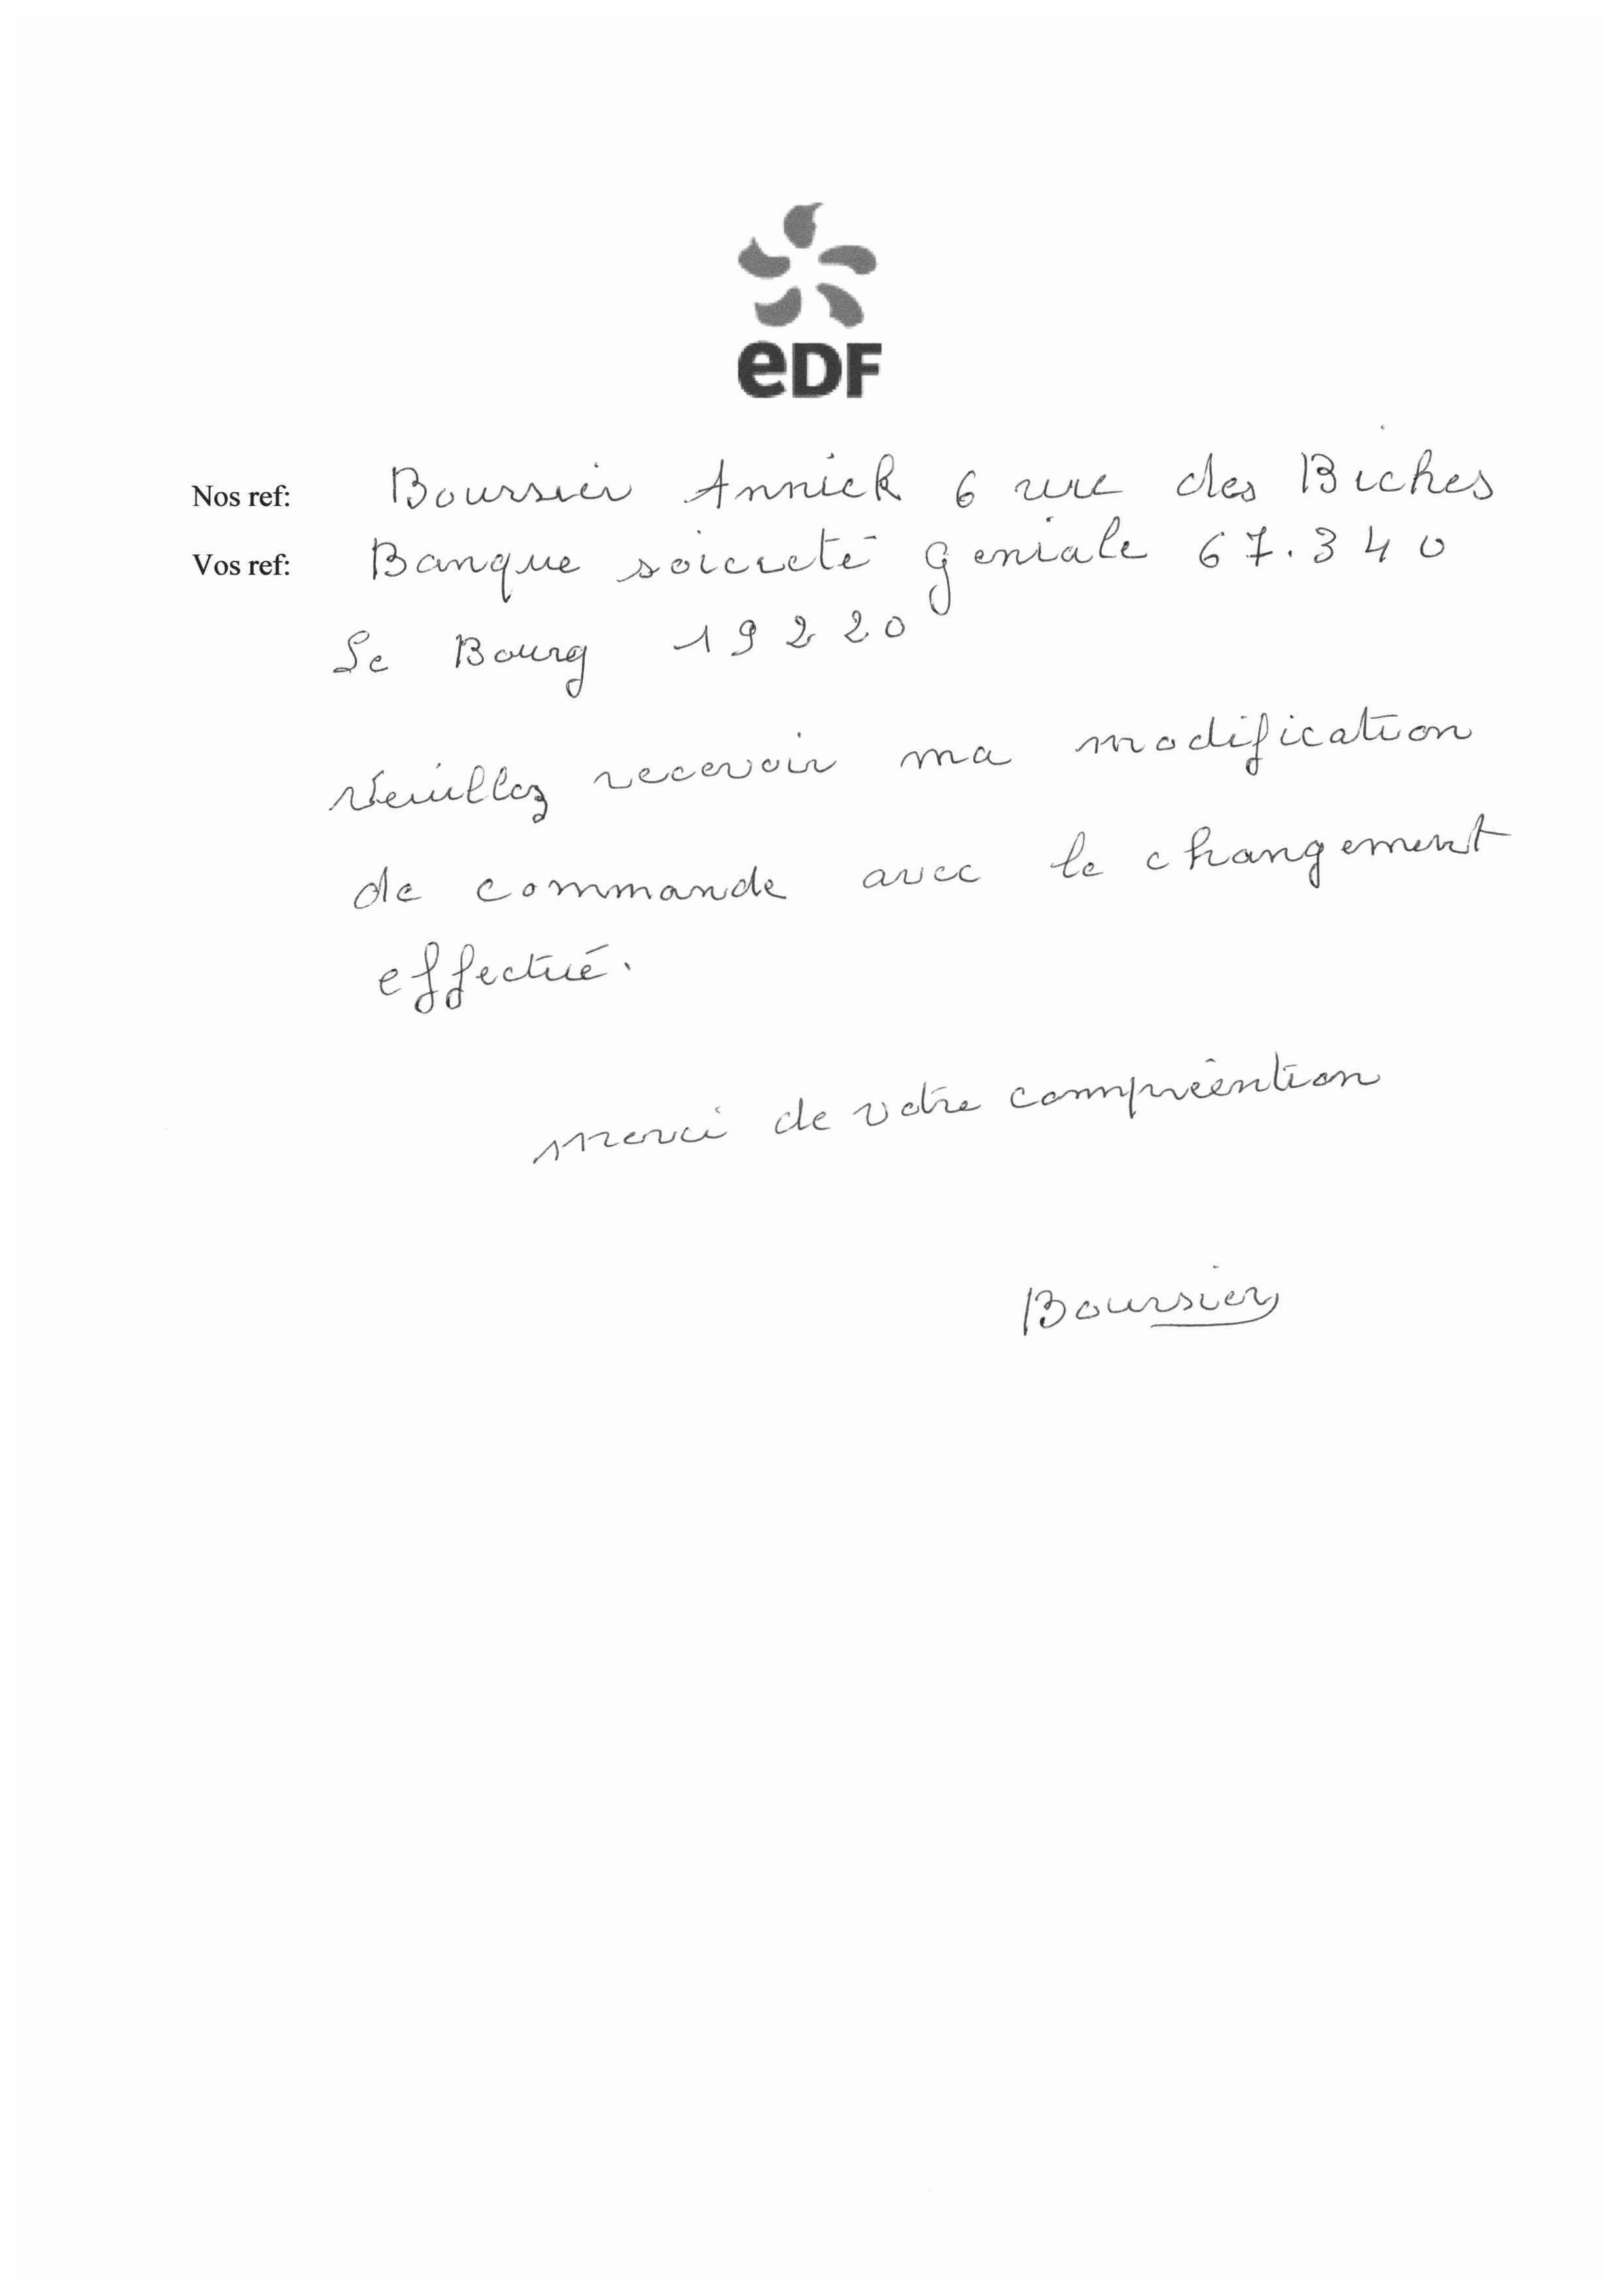 eDF
Nos ref: Boursier Annick 6 rue des Biches
Vos ref: Banque soicieté geniale 67.340
Le Bourg 19220
Veuillez recevoir ma modification
de commande avec le changement
effectué.
merci de votre compréention
Boursier